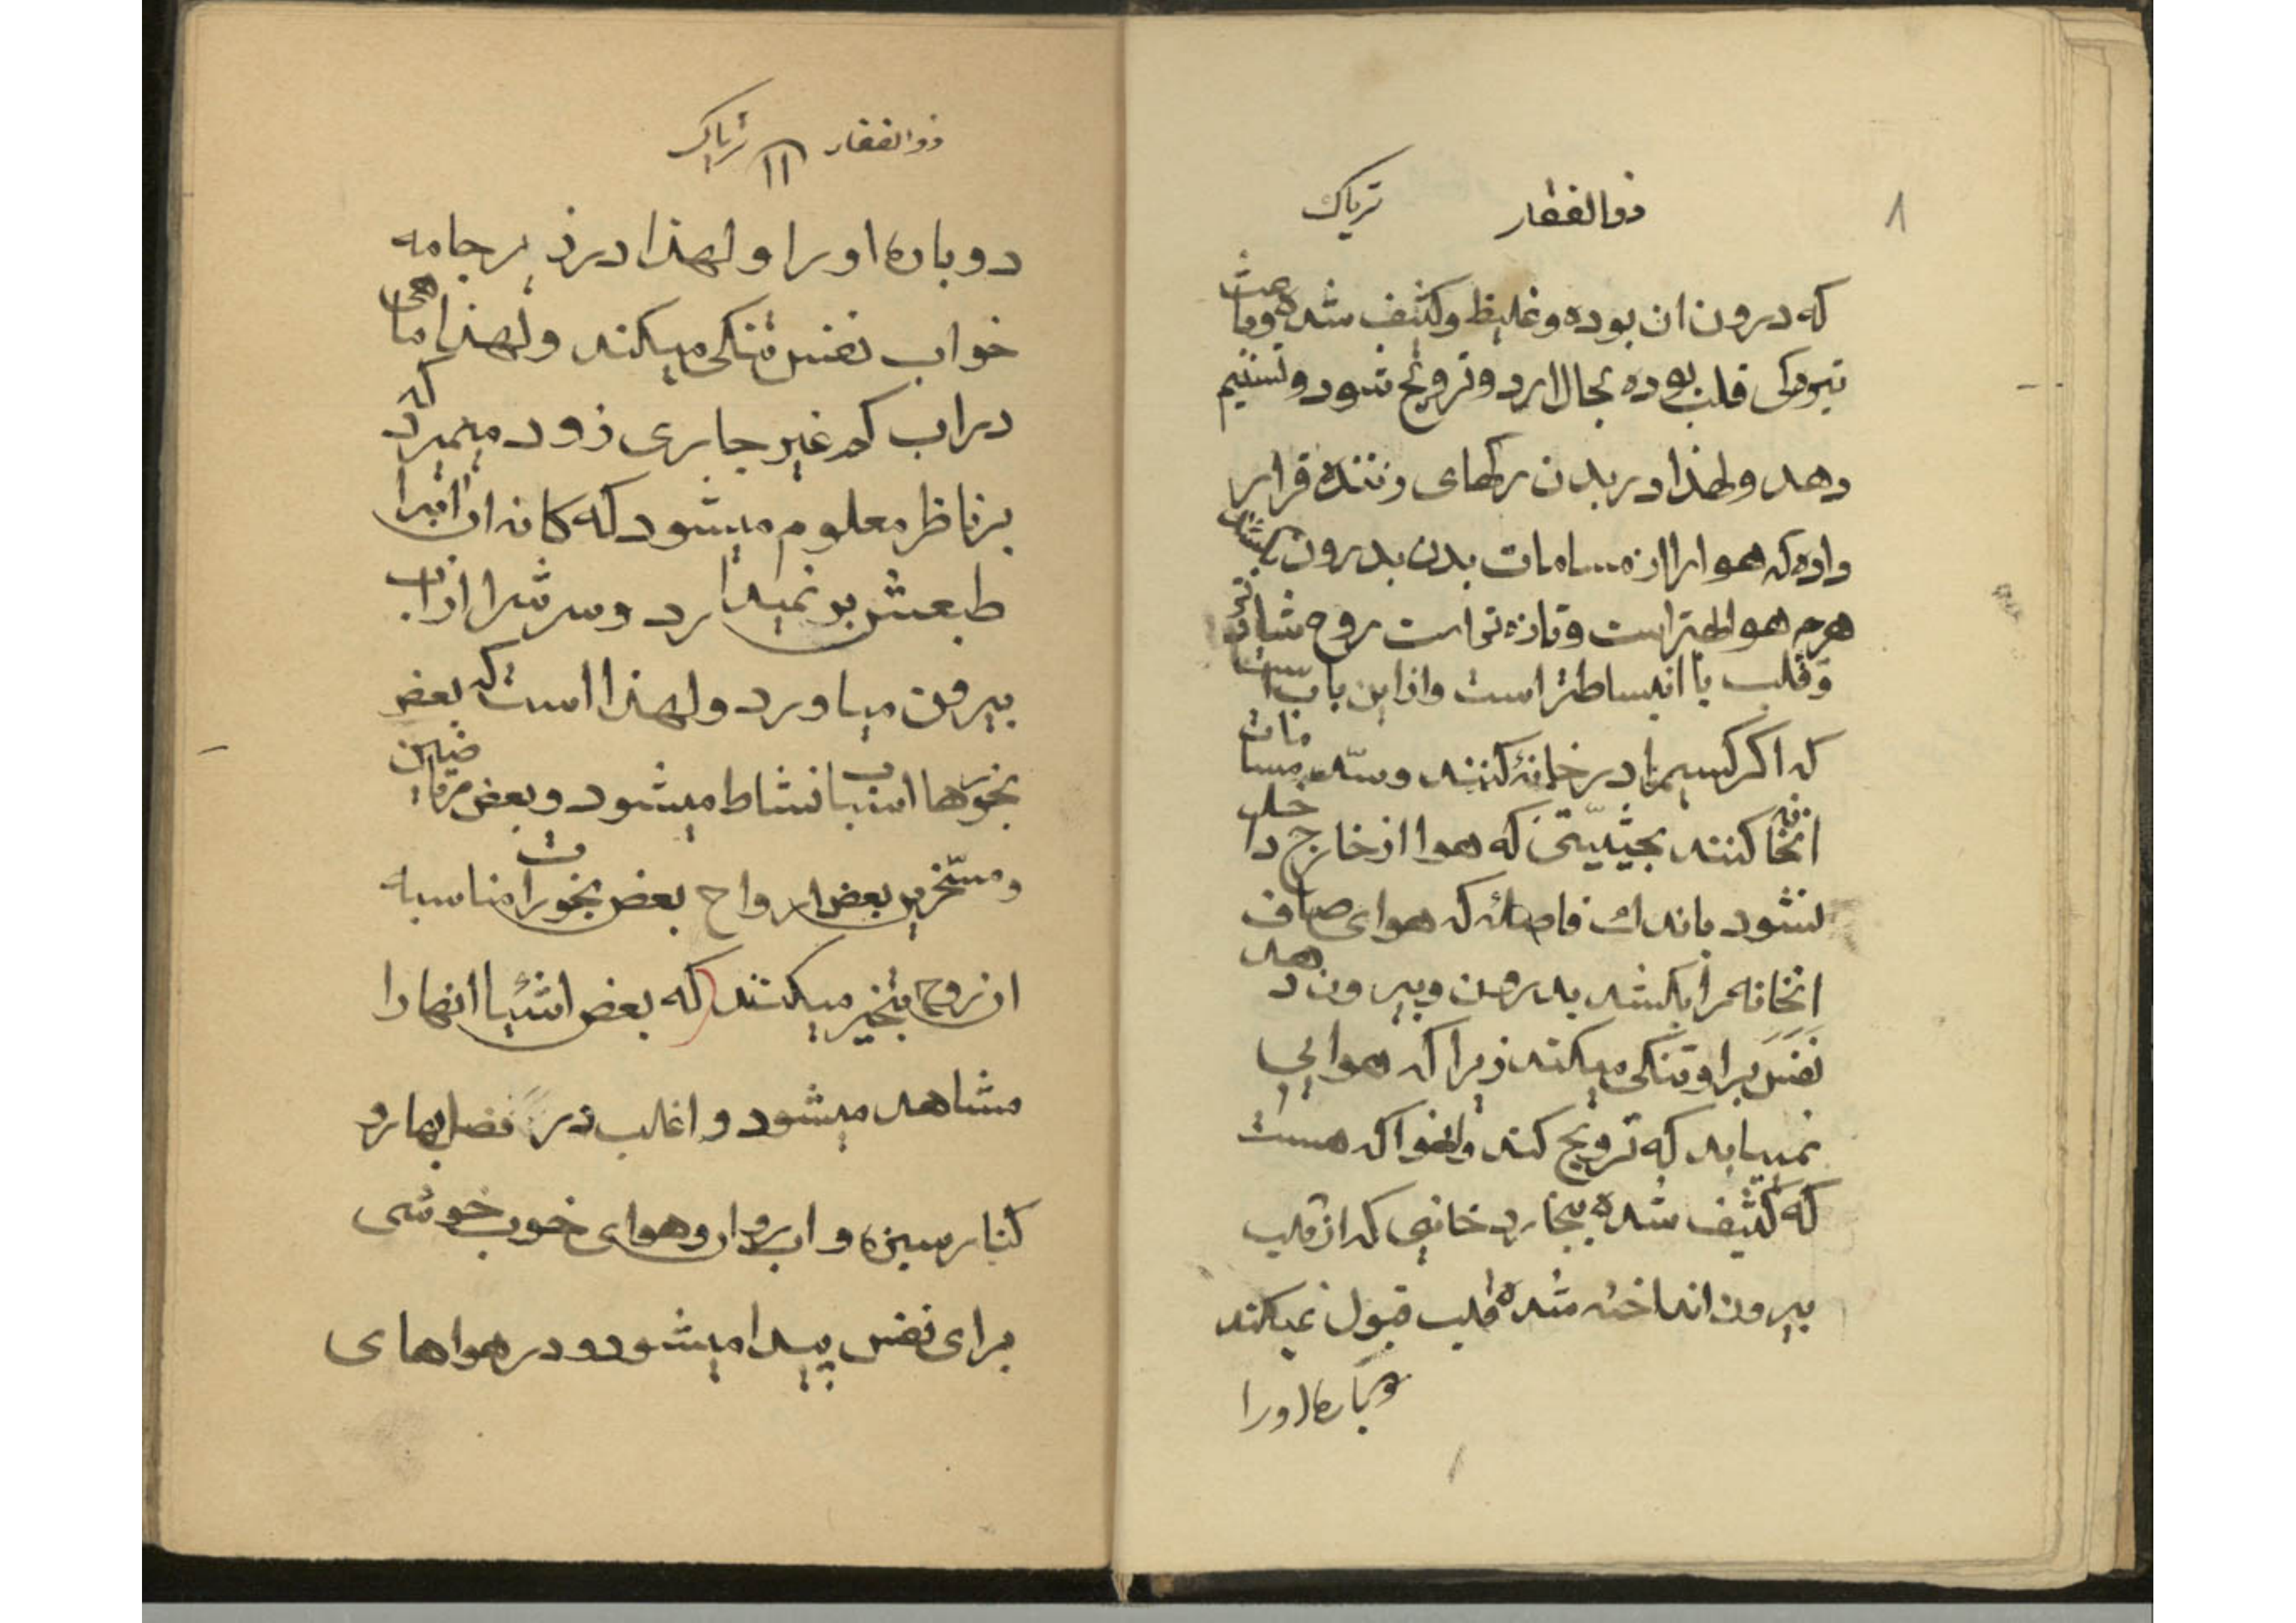 ذوالفقار تریاک
که درون ان بوده و غلیظ و کثیف شده و باعث
تیرهکی قلب بوده بحال ارد و ترویح شود و تسنیم
دهد و لهذا در بدن رکهای زننده قرار
داده که هوا را از مسامات بدن بدرون بکشد
هر چه هوا بهتر است و تازه تر است روح شادتر
و قلب با انبساطتر است و از این باب است
که اکر کسیرا در خانهٔ کنند و سدّ مسامات
انخانه کنند بحیثیّتی که هوا از خارج داخل
نشود باندک فاصلهٔ که هوای صاف
انخانه را بکشد بدرون و بیرون دهد
نفس براو تنکی میکند زیرا که هوایی
نمییابد که ترویح کند و انهوا که هست
که کثیف شده ببخار دخانیی که از قلب
بیرون انداخته شده قلب قبول نمیکند
دوباره اورا
ذوالفقار ۱۱ تریاک
دوباره اورا و لهذا در زیر جامه
خواب نفس تنکی میکند و لهذا ماهی
در اب کم غیر جاری زود میمیرد که
بر ناظر معلوم میشود که کانه ان ابرا
طبعش بر نمیدارد و سرشرا از اب
بیرون میاورد و لهذا است که بعض
بخورها اسباب نشاط میشود و بعض مرتاضین
و مسخّرین بعض ارواح بعض بخورات مناسبه
ان روح تبخیر میکنند که بعض اشیا انها را
مشاهد میشود و اغلب در فصل بهار و
کنار سبزه و اب روان و هوای خوب خوشی
برای نفس پیدا میشود و در هواهای